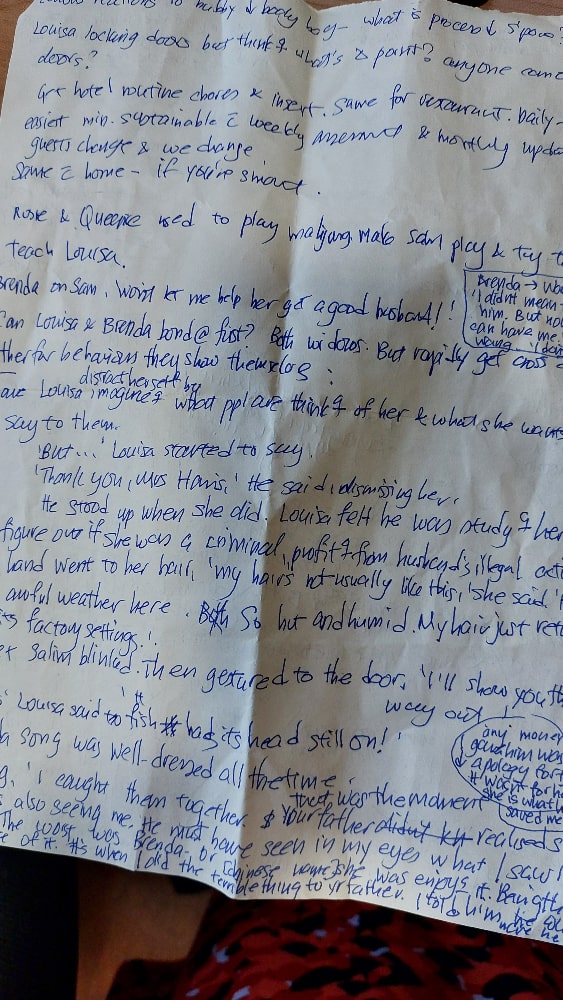 to hubby & body bag - what is process & space?
Louisa locking doors but think g what's & point? anyone come
doors?
Get hotel routine chores & insert. Same for restaurant. Daily -
easiest min. sustainable c weekly & monthly upda
guests change & we change
Same c home - if you're smart.
Rosie & Queenie used to play mahjong. Make Sam play & try t
teach Louisa.
Brenda on Sam. Won't let me help her get a good husband!!
Can Louisa & Brenda bond @ first? Both widows. But rapidly get cross
other for behaviours they show themselves
distract herself by
Louisa imagine g what ppl are think g of her & what she wants
say to them.
'But...' Louisa started to say.
'Thank you, Mrs Harris,' He said, dismissing her.
He stood up when she did. Louisa felt he was study g her
figure out if she was a criminal, profit g from husband's illegal acti
hand went to her hair, 'my hair's not usually like this,' she said.
awful weather here. So hot and humid. My hair just retu
its factory settings.'
Salim blinked. Then gestured to the door, 'I'll show you th
way out'
Louisa said 'It fish had its head still on!'
song was well-dressed all the time.
'I caught them together. That was the moment
also seeing me. He must have seen in my eyes what I saw
Your father realised
The worst was Brenda - or Chinese name) she was enjoy g it. Being the
of it. It's when I did the terrible thing to yr father. I told him, he
Brenda → wo
'I didn't mean
him. But no
can have me.
wrong.
any money
gave him was
apology for
It wasn't for he
she is what
saved me